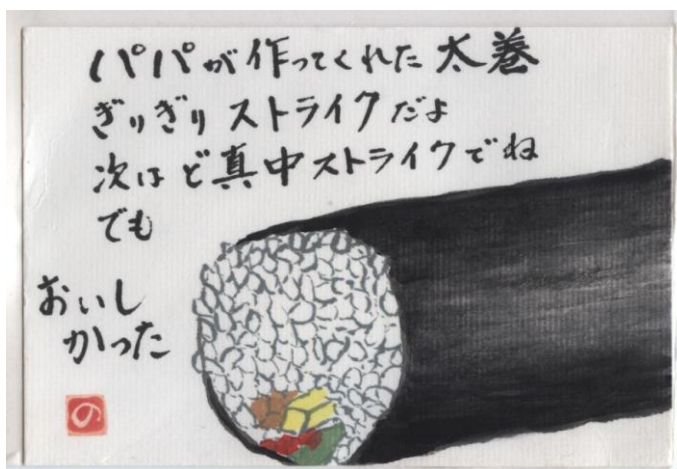 パパが作ってくれた太巻
ぎりぎりストライクだよ
次はど真中ストライクでね
でも
おいし
かった
の